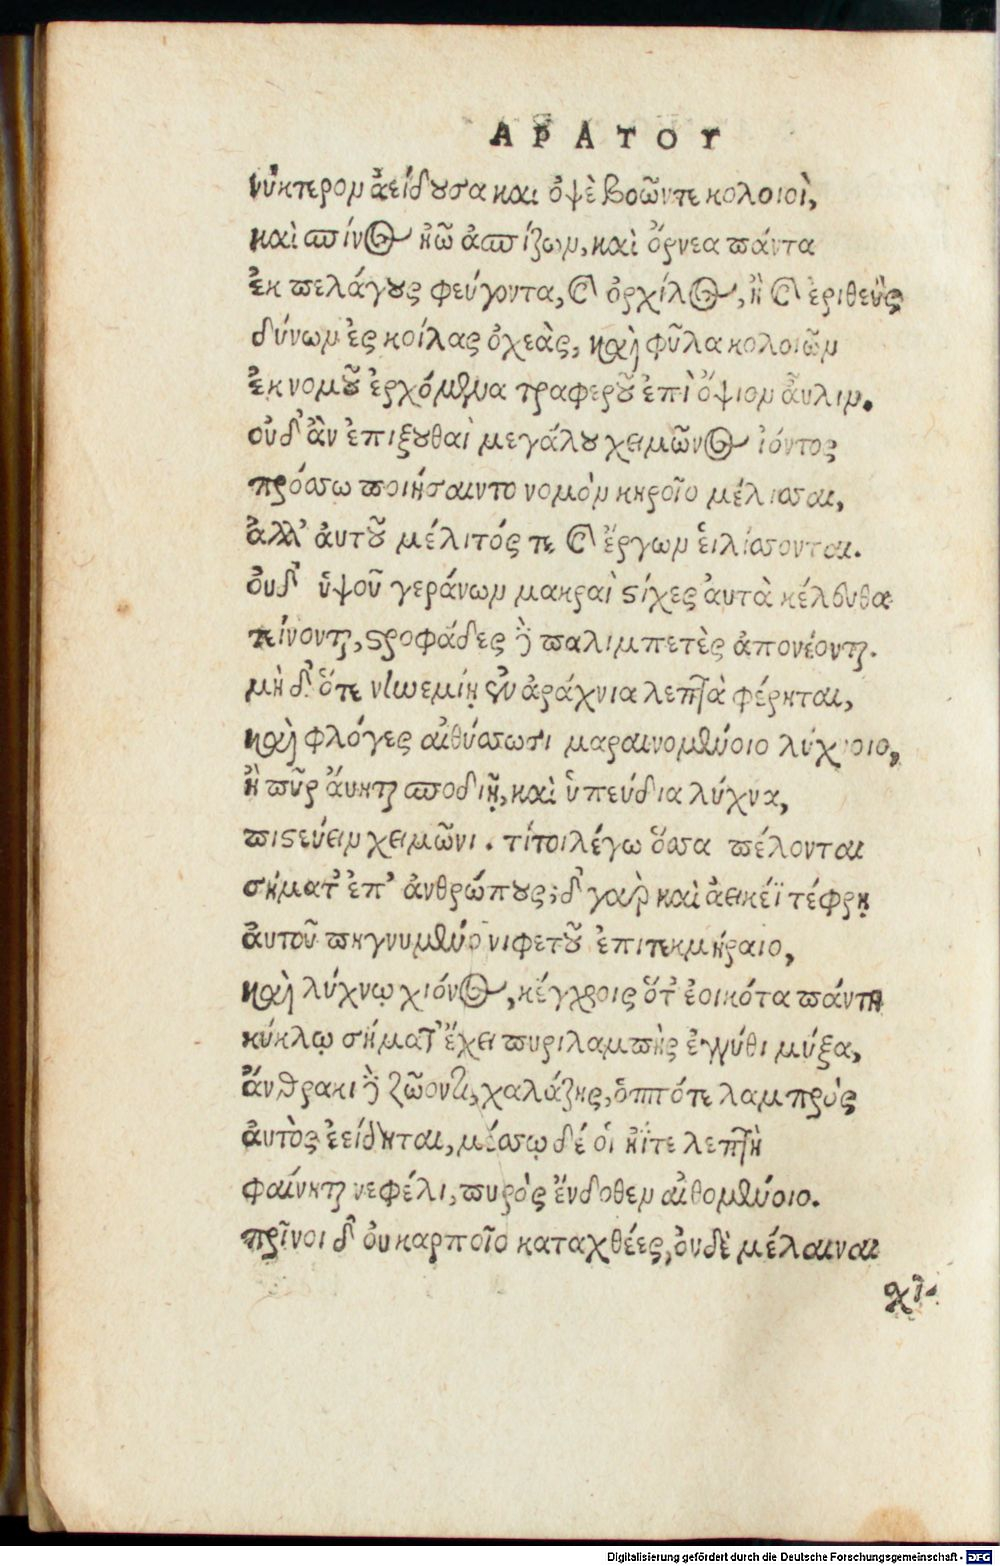 ΑΡΑΤΟΥ
νύκτερον ἀείδουσα καὶ ὀψὲ βοῶντε κολοιοὶ,
καὶ σπίνος ἠῶ σπίζων, καὶ ὄρνεα πάντα
ἐκ πελάγους φεύγοντα, καὶ ὀρχίλος, ἢ καὶ ἐριθεῦς
δύνων ἐς κοίλας ὀχεὰς, καὶ φῦλα κολοιῶν
ἐκ νομοῦ ἐρχόμενα τραφεροῦ ἐπὶ ὄψιον αὖλιν.
οὐδ' ἂν ἐπιξουθαὶ μεγάλου χειμῶνος ἰόντος
πρόσσω ποιήσαιντο νομὸν κηροῖο μέλισσαι,
ἀλλ' αὐτοῦ μέλιτός τε καὶ ἔργων εἱλίσσονται.
οὐδ' ὑψοῦ γεράνων μακραὶ στίχες αὐτὰ κέλευθα
τείνονται, στροφάδες δὲ παλιμπετὲς ἀπονέονται.
μὴ δ' ὅτε νηνεμίῃ κεν ἀράχνια λεπτὰ φέρηται,
καὶ φλόγες αἰθύσσωσι μαραινομένοιο λύχνοιο,
ἢ πῦρ ἄυηται σποδιῇ, καὶ ὑπεύδια λύχνα,
πιστεύειν χειμῶνι. τί τοι λέγω ὅσσα πέλονται
σήματ' ἐπ' ἀνθρώπους; δὴ γὰρ καὶ ἀεικέϊ τέφρῃ
αὐτοῦ πηγνυμένῃ νιφετοῦ ἐπιτεκμήραιο,
καὶ λύχνῳ χιόνος, κέγχροις ὅτ' ἐοικότα πάντη
κύκλῳ σήματ' ἔχει πυριλαμπὴς ἐγγύθι μύξα,
ἄνθρακι δὲ ζώοντι, χαλάζης, ὁππότε λαμπρὸς
αὐτὸς ἐείδηται, μέσσῳ δέ οἱ ἠΰτε λεπτὴ
φαίνηται νεφέλη, πυρὸς ἔνδοθεν αἰθομένοιο.
πρῖνοι δ' οὐ καρποῖο καταχθέες, οὐδὲ μέλαιναι
χῖ-
Digitalisierung gefördert durch die Deutsche Forschungsgemeinschaft - DFG